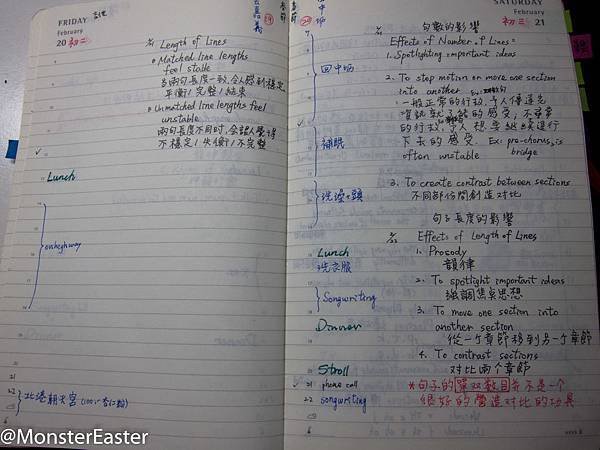 FRIDAY
February
20 初二
Length of Lines
• Matched line lengths
feel stable
當兩句長度一致,令人感到穩定
平衡 / 完整 / 結束
• Unmatched line lengths feel
unstable
兩句長度不同时,會讓人覺得
不穩定 / 失衡 / 不完整
Lunch
22 北港朝天宮
SATURDAY
February
初三 21
句數的影響
Effects of Number of Lines=
1. Spotlighting important ideas
回中場
2. To stop motion or move one section
into another
一般正常的行数,予人停這先
的感受,不尋常
補眠
的行数,予人想要繼續進行
下去的感受. Ex: pre-chorus,
bridge
often unstable
洗澡+頭
3. To create contrast between sections
不同部份間創造对比
句子長度的影響
Effects of Length of Lines
Lunch
1. Prosody
洗衣服
韻律
2. To spotlight important ideas
Songwriting
強調焦点思想
3. To move one section into
Dinner
another section
從一个章節移到另一个章節
4. To contrast sections
Stroll
对比兩个章節
21 phone call
*句子的單双數目并不是一个
22 songwriting
很好的營造对比的工具
WEEK 8
@MonsterEaster